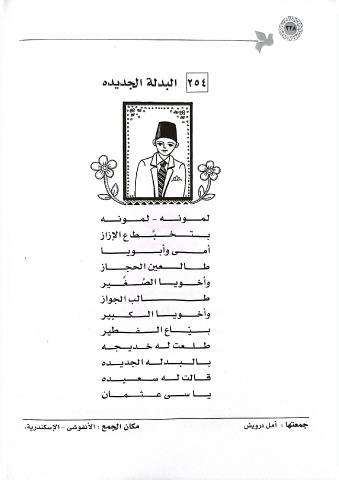 ٢٢٨
٢٥٤ البدلة الجديده
لمونه - لمونه
بتخبَّط ع الإزاز
أمى وأبويا
طالعين الحجاز
وأخويا الصُغَّير
طالب الجواز
وأخويا الكبير
بيّاع الفطير
طلعت له خديجه
بالبدله الجديده
قالت له سعيده
يا سى عثمان
جمعتها : أمل درويش
مكان الجمع : الأنفوشى - الإسكندرية.